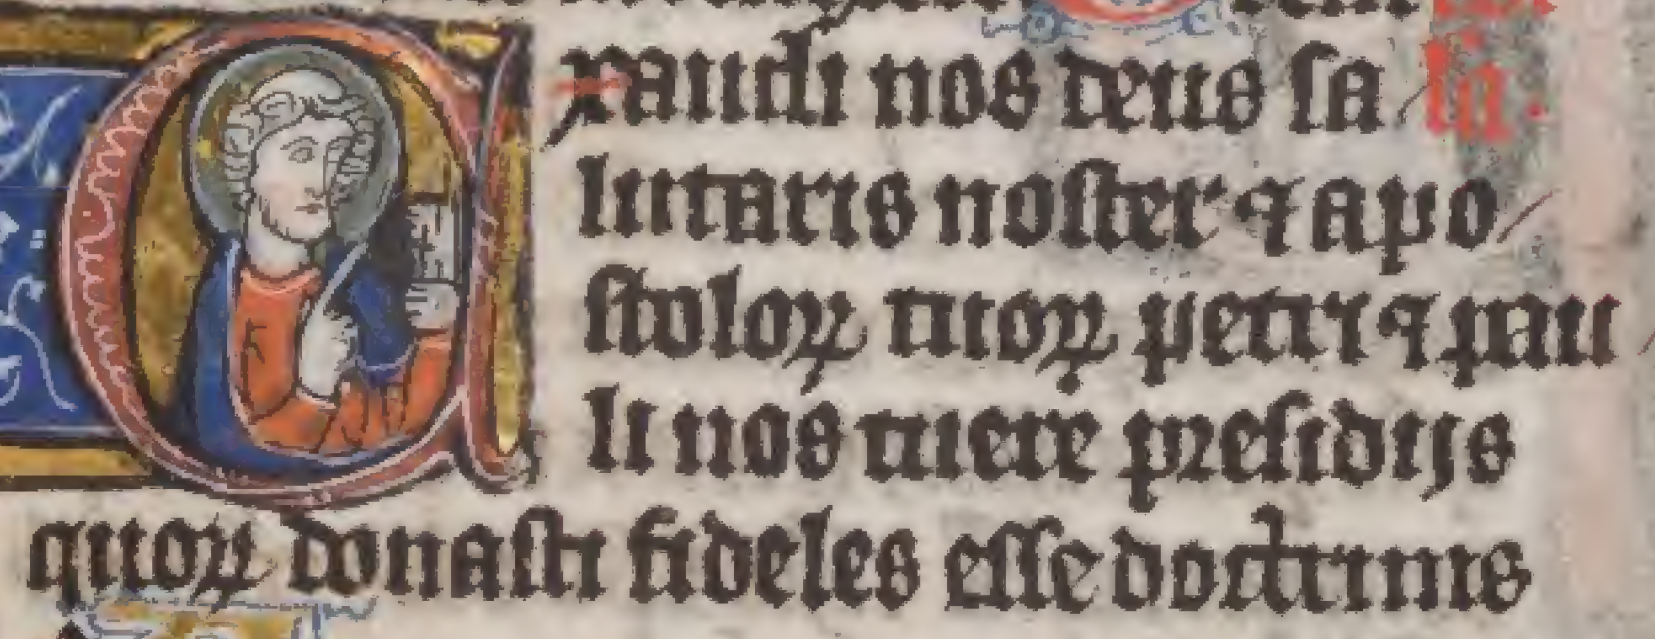 Exaudi nos deus sa
lutaris noster ⁊ apo
stoloꝝ tuoꝝ petri ⁊ pau
li nos tuere presidijs
quoꝝ donasti fideles esse doctrinis